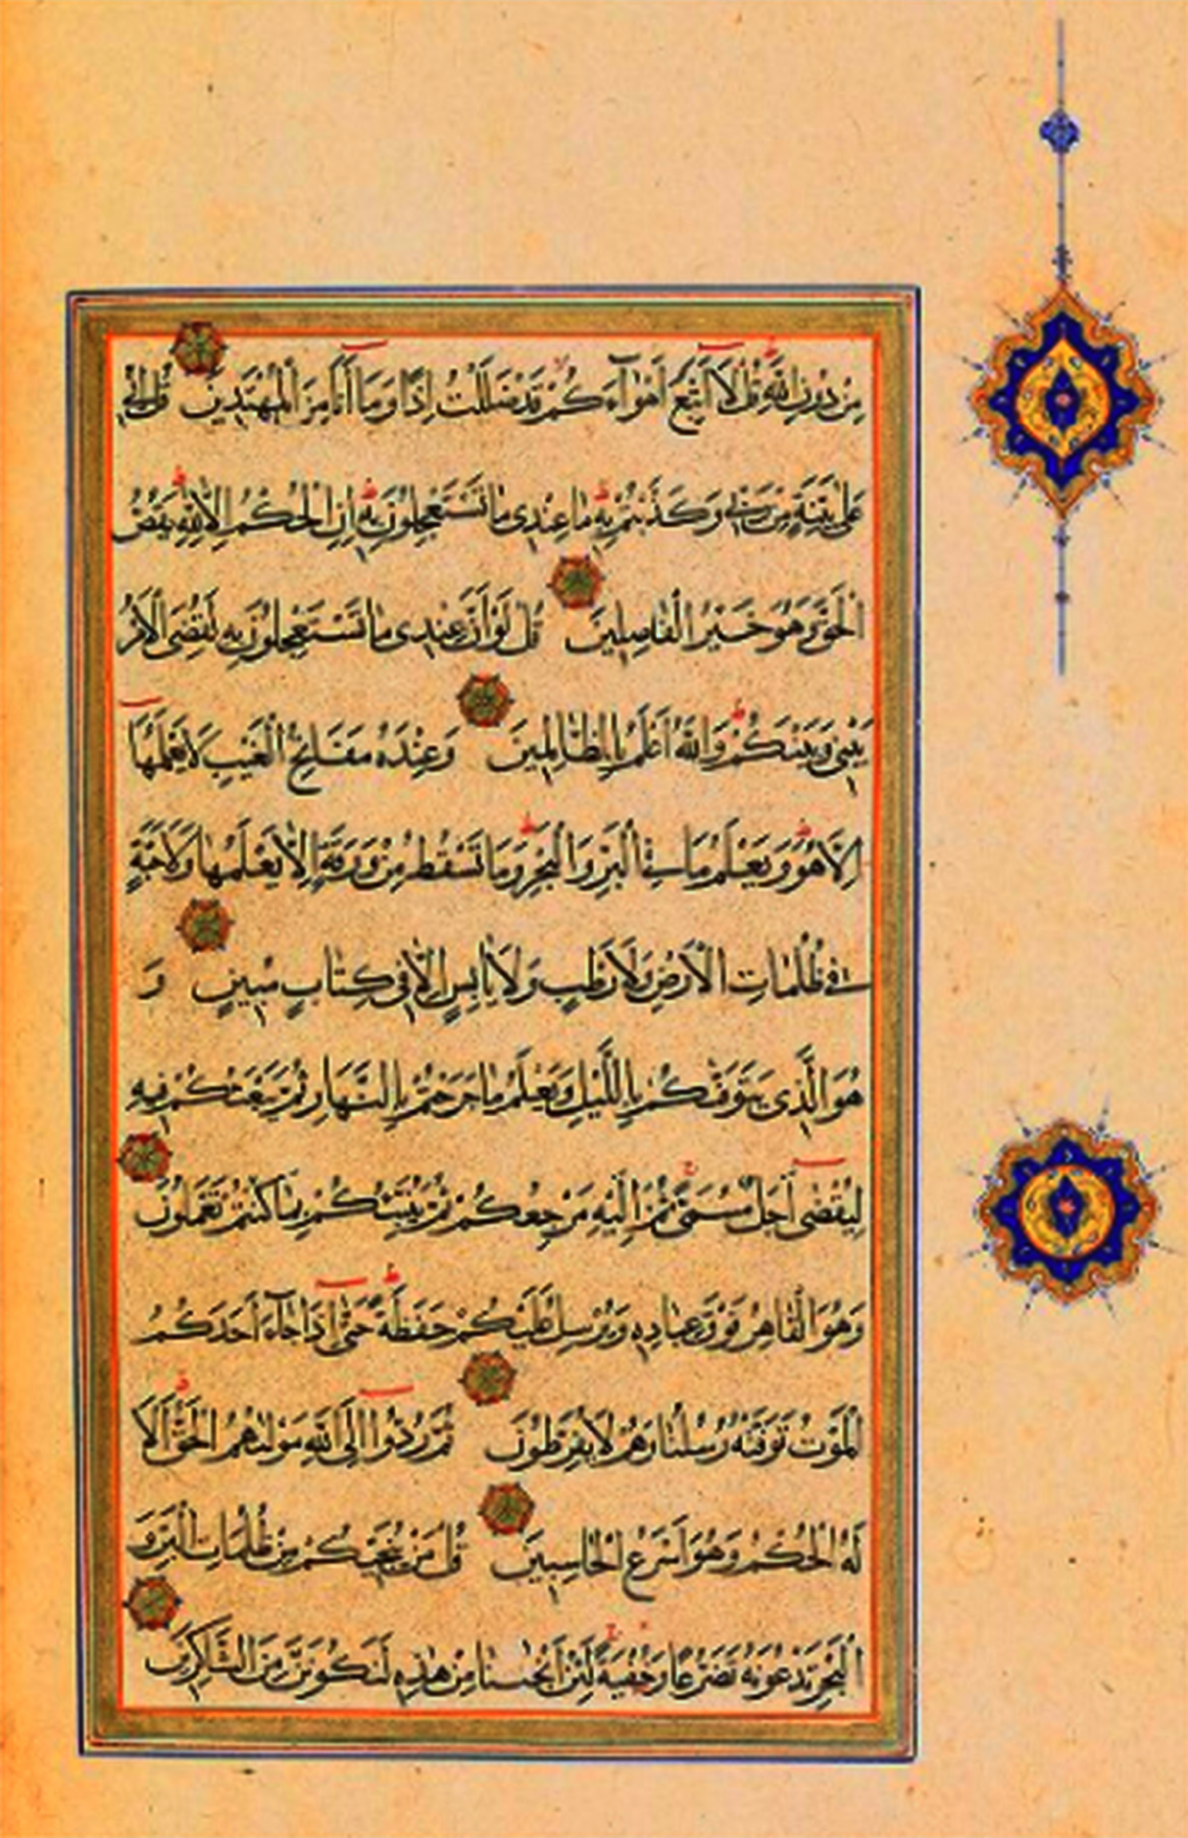 مِنْ دُونِ اللَّهِ قُلْ لَا أَتَّبِعُ أَهْوَاءَكُمْ قَدْ ضَلَلْتُ إِذًا وَمَا أَنَا مِنَ الْمُهْتَدِينَ قُلْ إِنِّي
عَلَى بَيِّنَةٍ مِنْ رَبِّي وَكَذَّبْتُمْ بِهِ مَا عِنْدِي مَا تَسْتَعْجِلُونَ بِهِ إِنِ الْحُكْمُ إِلَّا لِلَّهِ يَقُصُّ
الْحَقَّ وَهُوَ خَيْرُ الْفَاصِلِينَ قُلْ لَوْ أَنَّ عِنْدِي مَا تَسْتَعْجِلُونَ بِهِ لَقُضِيَ الْأَمْرُ
بَيْنِي وَبَيْنَكُمْ وَاللَّهُ أَعْلَمُ بِالظَّالِمِينَ وَعِنْدَهُ مَفَاتِحُ الْغَيْبِ لَا يَعْلَمُهَا
إِلَّا هُوَ وَيَعْلَمُ مَا فِي الْبَرِّ وَالْبَحْرِ وَمَا تَسْقُطُ مِنْ وَرَقَةٍ إِلَّا يَعْلَمُهَا وَلَا حَبَّةٍ
فِي ظُلُمَاتِ الْأَرْضِ وَلَا رَطْبٍ وَلَا يَابِسٍ إِلَّا فِي كِتَابٍ مُبِينٍ وَ
هُوَ الَّذِي يَتَوَفَّىكُمْ بِاللَّيْلِ وَيَعْلَمُ مَا جَرَحْتُمْ بِالنَّهَارِ ثُمَّ يَبْعَثُكُمْ فِيهِ
لِيُقْضَى أَجَلٌ مُسَمًّى ثُمَّ إِلَيْهِ مَرْجِعُكُمْ ثُمَّ يُنَبِّئُكُمْ بِمَا كُنْتُمْ تَعْمَلُونَ
وَهُوَ الْقَاهِرُ فَوْقَ عِبَادِهِ وَيُرْسِلُ عَلَيْكُمْ حَفَظَةً حَتَّى إِذَا جَاءَ أَحَدَكُمُ
الْمَوْتُ تَوَفَّتْهُ رُسُلُنَا وَهُمْ لَا يُفَرِّطُونَ ثُمَّ رُدُّوا إِلَى اللَّهِ مَوْلَىهُمُ الْحَقِّ أَلَا
لَهُ الْحُكْمُ وَهُوَ أَسْرَعُ الْحَاسِبِينَ قُلْ مَنْ يُنَجِّيكُمْ مِنْ ظُلُمَاتِ الْبَرِّ وَ
الْبَحْرِ تَدْعُونَهُ تَضَرُّعًا وَخُفْيَةً لَئِنْ أَنْجَيْتَنَا مِنْ هَذِهِ لَنَكُونَنَّ مِنَ الشَّاكِرِينَ